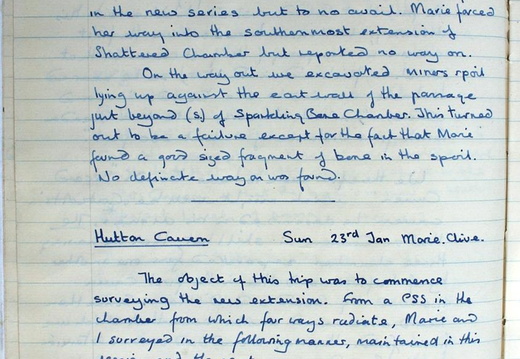 in the new series but to no avail. Marie forced
her way into the southernmost extension of
Shattered Chamber but reported no way on.
On the way out we excavated miners spoil
lying up against the east wall of the passage
just beyond (s) of Sparkling Bone Chamber. This turned
out to be a failure except for the fact that Marie
found a good sized fragment of bone in the spoil.
No definate way on was found.
Hutton Cavern Sun 23rd Jan Marie. Clive.
The object of this trip was to commence
surveying the new extension. From a PSS in the
chamber from which four ways radiate, Marie and
I surveyed in the following manner, maintained in this